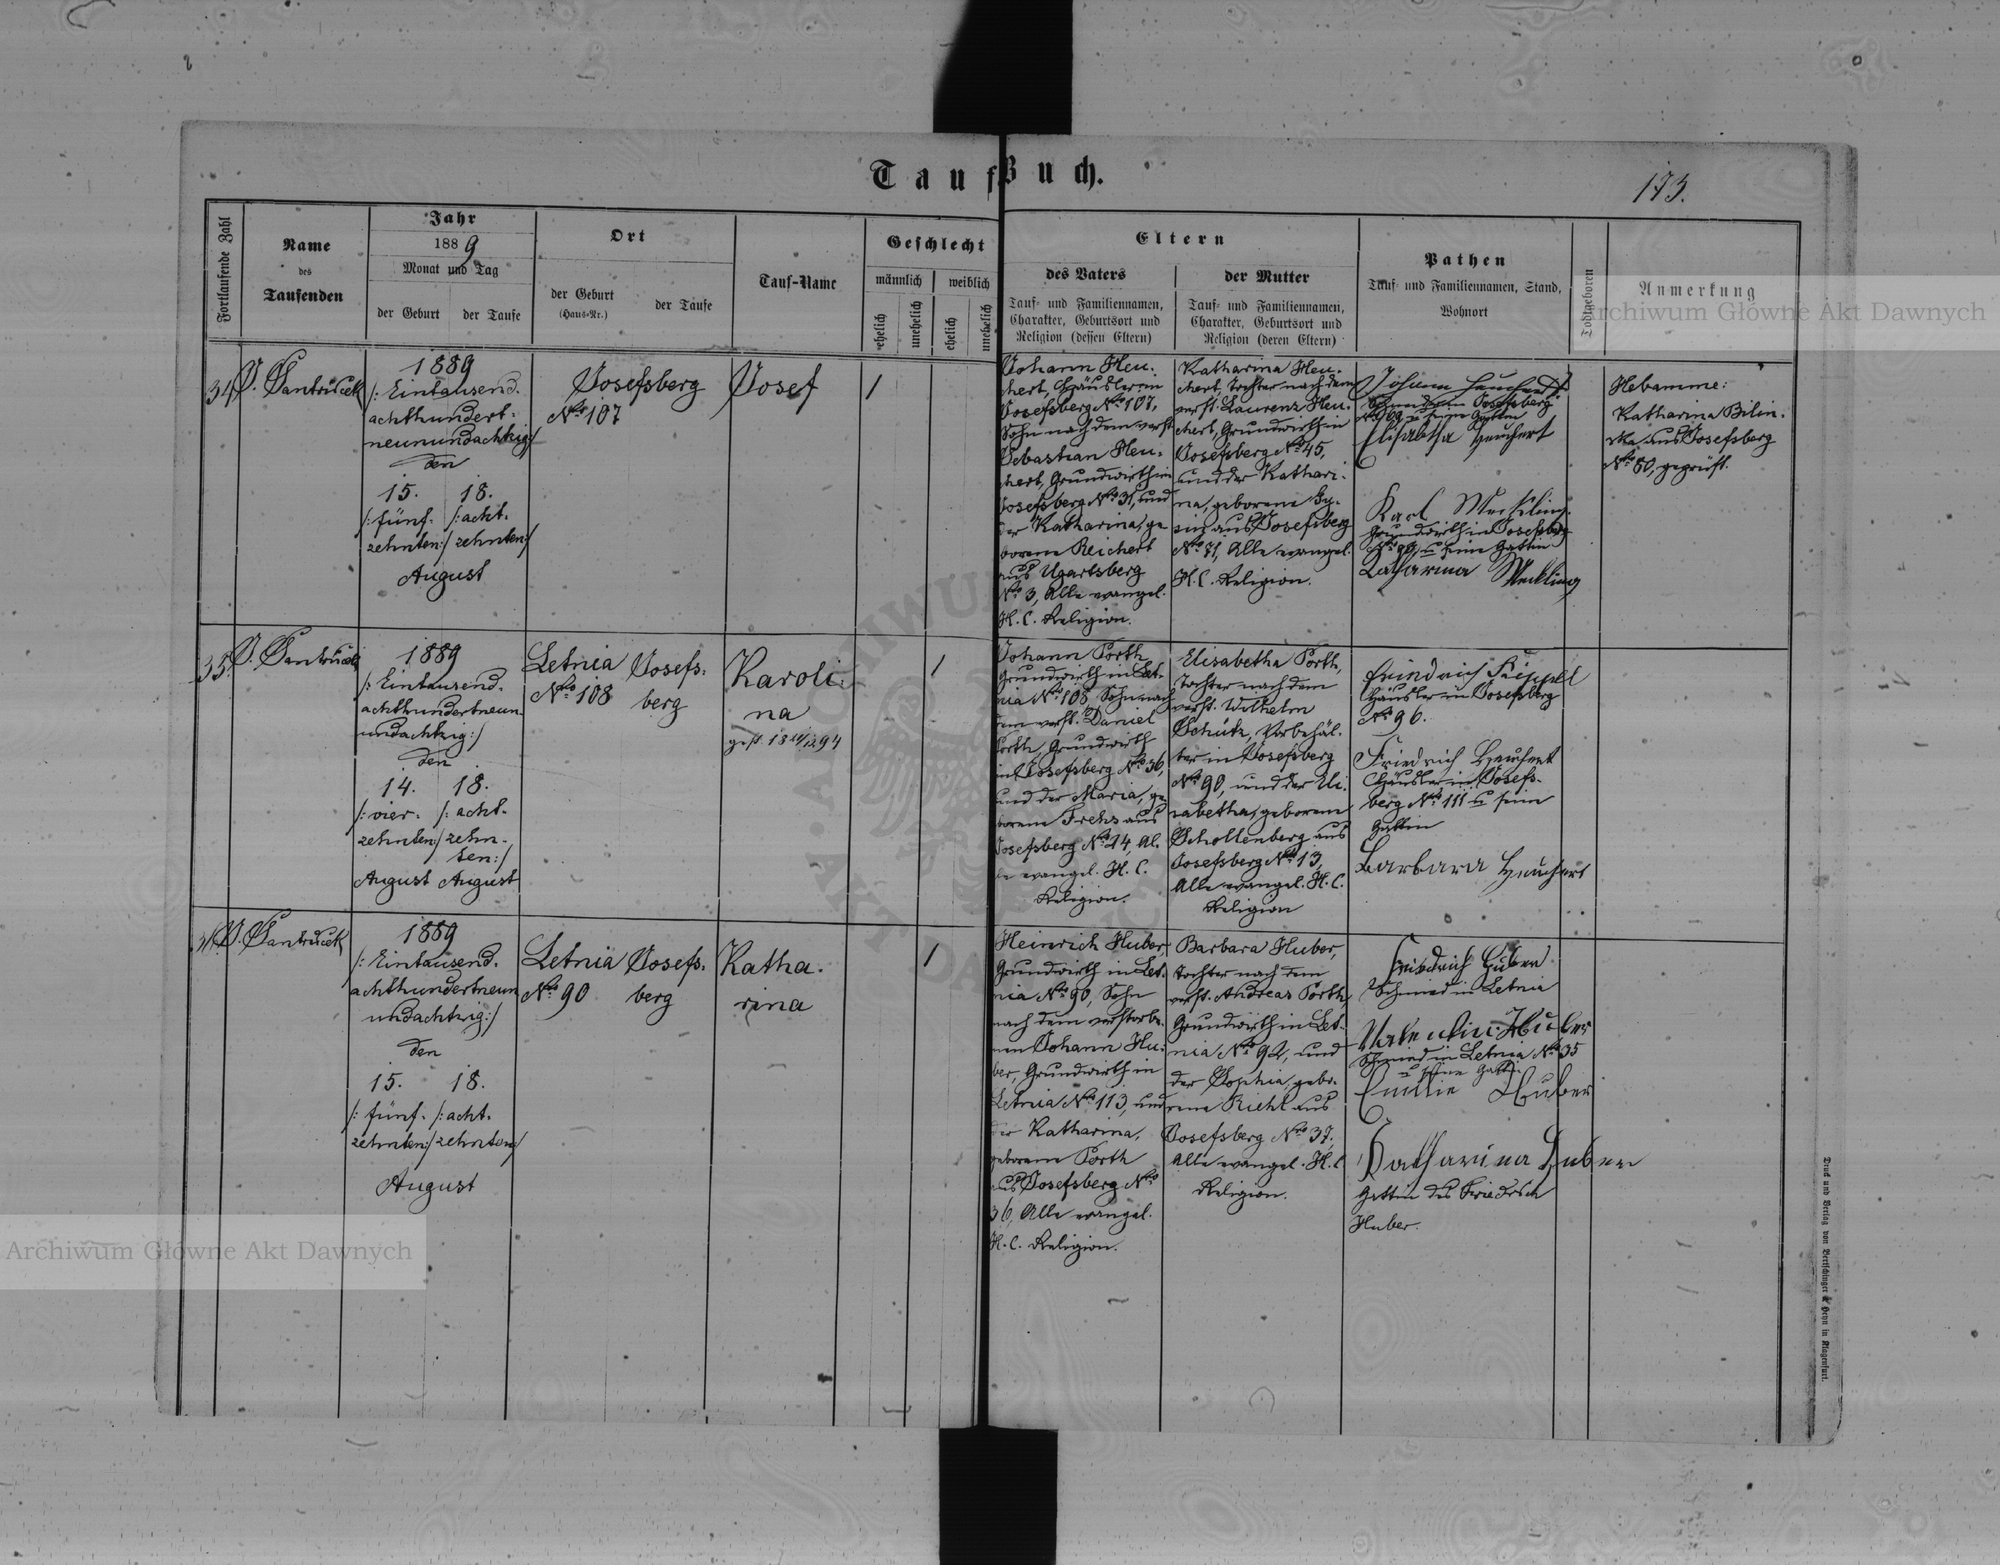 Tauf-Buch.
173.
Fortlaufende Zahl
Name
des
Taufenden
Jahr
1889
Monat und Tag
der Geburt
der Taufe
Ort
der Geburt
(Haus-Nr.)
der Taufe
Tauf-Name
Geschlecht
männlich
weiblich
ehelich
unehelich
ehelich
unehelich
Eltern
des Vaters
Tauf- und Familiennamen,
Charakter, Geburtsort und
Religion (dessen Eltern)
der Mutter
Tauf- und Familiennamen,
Charakter, Geburtsort und
Religion (deren Eltern)
Pathen
Tauf- und Familiennamen, Stand,
Wohnort
Todtgeboren
Anmerkung
34.
J. Santruček
1889
/: Eintausend-
achthundert-
neunundachtzig:/
den
15. 18.
/: fünf- /: acht-
zehnten:/ zehnten:/
August
Josefsberg
Nro 107
Josef
1
Johann Heu-
chert, Häusler in
Josefsberg Nro 107,
Sohn nach dem verst.
Sebastian Heu-
chert, Grundwirth in
Josefsberg Nro 31, und
der Katharina, ge
borene Reichert
aus Ugartsberg
Nro 3, Alle evangel.
H. C. Religion.
Katharina Heu-
chert, Tochter nach dem
verst. Laurenz Heu-
chert, Grundwirth in
Josefsberg Nro 45,
und der Kathari-
na, geborene
aus Josefsberg
Nro 71, Alle evangel.
H. C. Religion.
Johann Heuchert
Josefsberg
Nro 69 u seine Gattin
Elisabetha Heuchert
Karl Meckling
Grundwirth in Josefsberg
Nro 99, u seine Gattin
Katharina Meckling
Hebamme:
Katharina Bilin-
ska aus Josefsberg
Nro 80, geprüft.
35.
J. Santruček
1889
/: Eintausend-
achthundertneun-
undachtzig:/
den
14. 18.
/: vier- /: acht-
zehnten:/ zehn-
ten:/
August August
Letnia Josefs-
Nro 108 berg
Karoli-
na
1
Johann Porth
Grundwirth in Let-
nia Nro 108, Sohn nach
dem verst. Daniel
Porth, Grundwirth
in Josefsberg Nro 36,
und der Maria, ge
borene Frehs aus
Josefsberg Nro 14, Al-
le evangel. H. C.
Religion.
Elisabetha Porth,
Tochter nach dem
verst. Wilhelm
Schütz, Vorbehäl-
ter in Josefsberg
Nro 90, und der Eli-
sabetha, geborene
Schollenberg aus
Josefsberg Nro 13,
Alle evangel. H. C.
Religion
Friedrich Kippel
Häusler in Josefsberg
Nro 96.
Friedrich Heuchert
Häusler in Josefs-
berg Nro 111 u seine
Gattin
Barbara Heuchert
36.
J. Santruček
1889
/: Eintausend-
achthundertneun
undachtzig:/
den
15. 18.
/: fünf- /: acht-
zehnten:/ zehnten:/
August
Letnia Josefs-
Nro 90 berg
Katha-
rina
1
Heinrich Huber,
Grundwirth in Let-
nia Nro 90, Sohn
nach dem verstorbe-
nen Johann Hu-
ber, Grundwirth in
Letnia Nro 113, und
der Katharina,
geborene Porth
aus Josefsberg Nro
36, Alle evangel.
H. C. Religion.
Barbara Huber,
Tochter nach dem
verst. Andreas Porth,
Grundwirth in Let-
nia Nro 92, und
der Sophia, gebo-
rene Riehl aus
Josefsberg Nro 37,
Alle evangel. H. C
Religion.
Friedrich Huber
Schmied in Letnia
Valentin Huber
Schmied in Letnia Nro 35
u seine Gattin
Emilie Huber
Katharina Huber
Gattin des Friedrich
Huber.
Druck und Verlag von Bertschinger & Heyn in Klagenfurt.
Archiwum Główne Akt Dawnych
Archiwum Główne Akt Dawnych